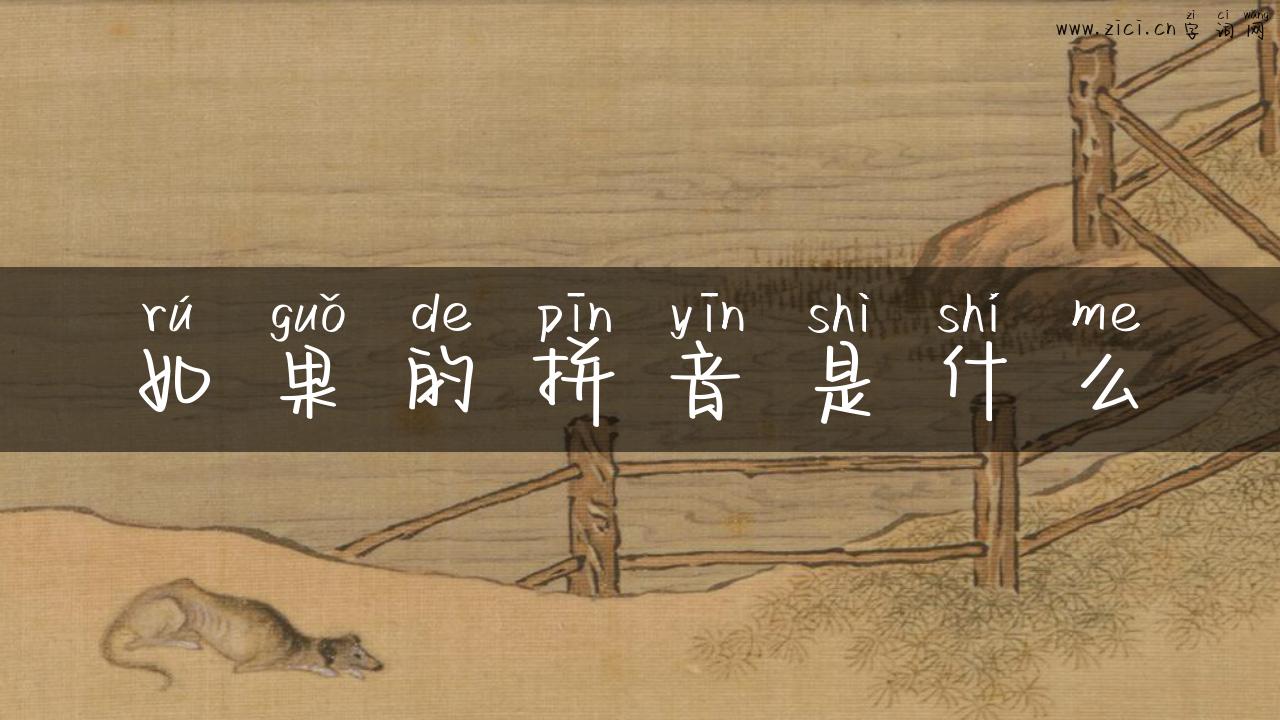 zi ci wang
www.zici.cn字词网
rú guǒ de pīn yīn shì shí me
如果的拼音是什么